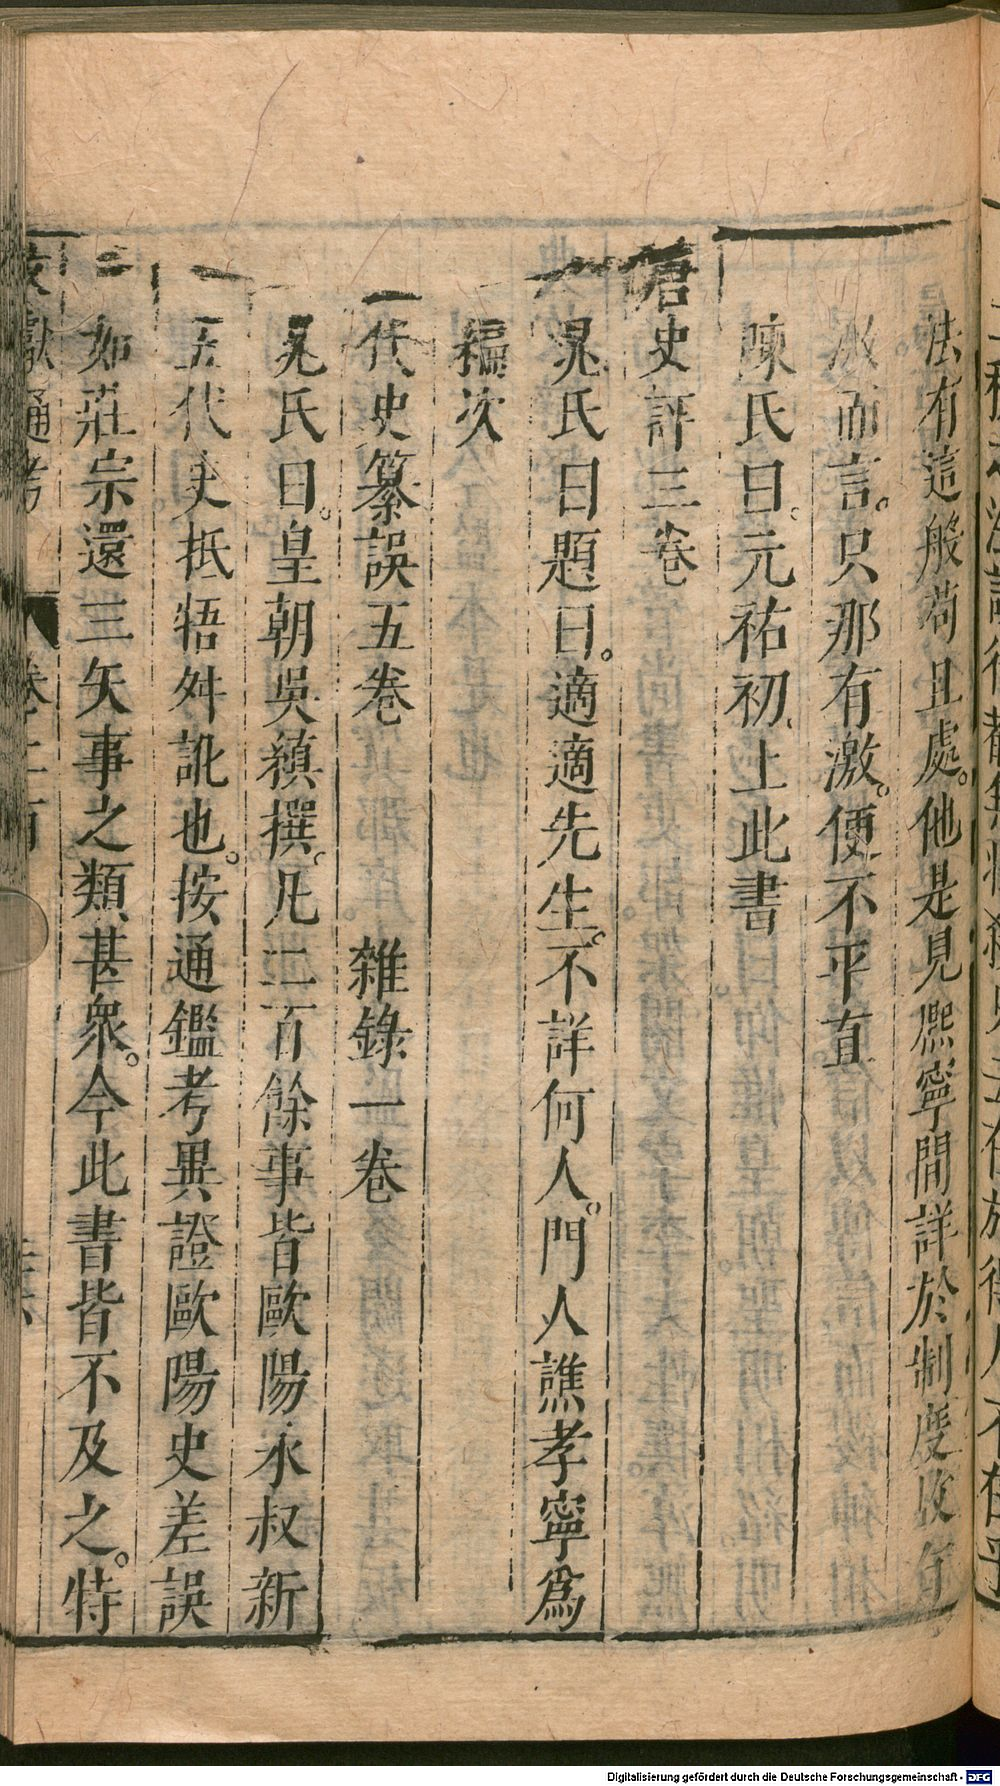 法有這般苟且處。他是見熙寧間詳於制度故有
激而言。只那有激。便不平直
陳氏曰。元祐初上此書
唐史評三卷
晁氏曰題曰。適適先生。不詳何人。門人譙孝寧爲
編次
五代史纂誤五卷　雜錄一卷
晁氏曰。皇朝吳縝撰。凡二百餘事皆歐陽永叔新
五代史抵牾舛訛也。按通鑑考異證歐陽史差誤
如莊宗還三矢事之類甚衆。今此書皆不及之。特
文獻通考　卷二百
Digitalisierung gefördert durch die Deutsche Forschungsgemeinschaft - DFG